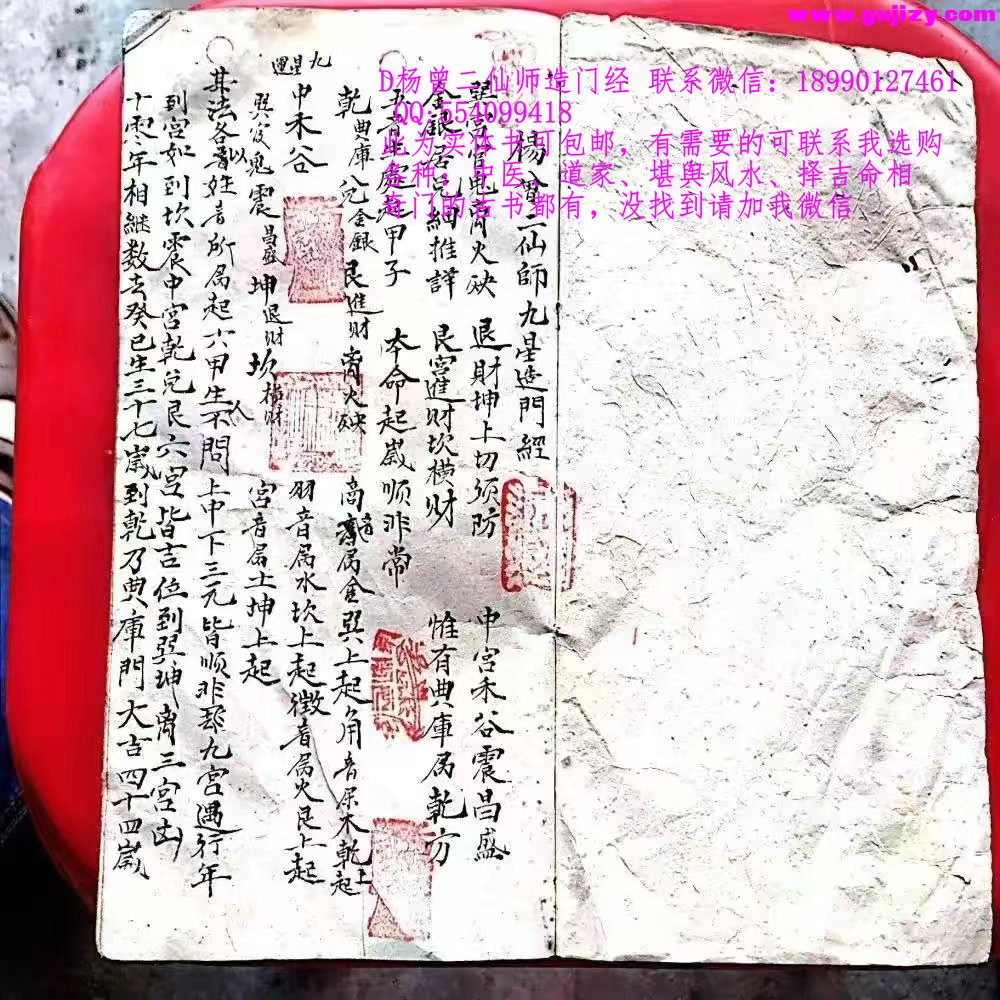 www.gujizy.com
D杨曾二仙师造门经 联系微信：18990127461
QQ:554099418
为实体书可包邮，有需要的可联系我选购
种，中医、道家、堪舆风水、择吉命相
奇门的古书都有，没找到请加我微信
楊曾二仙師九星造門經
退財坤上切须防 中宮禾谷震昌盛
細推詳 艮宮進財坎横财 惟有典庫属乾方
甲子 本命起歲顺非常
乾典庫 兌金銀 艮進财 离火殃 商音属金巽上起角音属木乾上起
九星運
中禾谷 羽音属水坎上起徵音属火艮上起
鬼震昌盛 坤退财 坎横财 宮音属土坤上起
其法各以姓音所属起六甲生人不問上中下三元皆顺非九宮遇行年
到宮如到坎震中宮乾兌艮六宮皆吉位到巽坤离三宮凶
十零年相継数去癸巳生三十七歲到乾乃典庫門大吉四十四歲